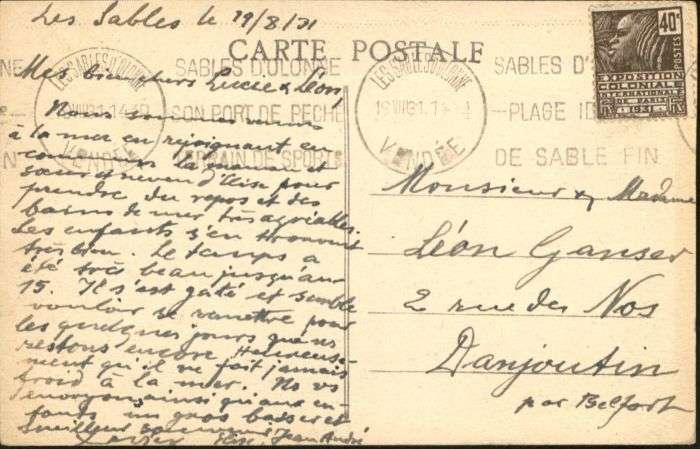 Les Sables le 19/8/31
CARTE POSTALE
Mes bien chers Lucie & Léon,
Nous sommes venus
à la mer en rejoignant en
la maman et
sœur et neveu d'Elise pour
prendre du repos et des
bains de mer très agréables.
Les enfants s'en trouvent
très bien. Le temps a
été très beau jusqu'au
15. Il s'est gâté et semble
vouloir se remettre pour
les quelques jours que ns
restons encore. Heureuse-
ment qu'il ne fait jamais
froid à la mer. Ns vs
envoyons ainsi qu'aux en-
fants un gros baiser et
meilleur souvenir
Elise, Jean André
LES SABLES D'OLONNE
VENDÉE
SABLES D'OLONNE
SON PORT DE PÊCHE
TERRAIN DE SPORTS
LES SABLES D'OLONNE
VENDÉE
SABLES D'
PLAGE
DE SABLE FIN
40c
POSTES
EXPOSITION
COLONIALE
INTERNATIONALE
DE PARIS
1931
Monsieur & Madame
Léon Ganser
2 rue des Nos
Danjoutin
par Belfort